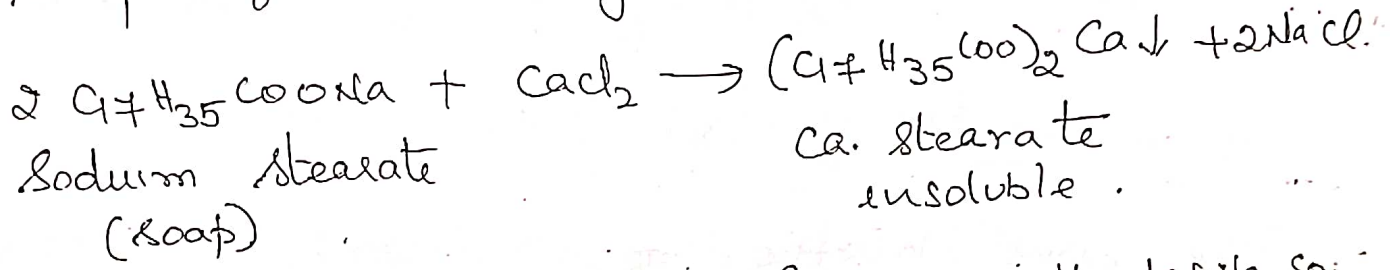 2 C17H35COONa + CaCl2 → (C17H35COO)2 Ca↓ + 2NaCl.
Soduim stearate
Ca. stearate
insoluble.
(soap)